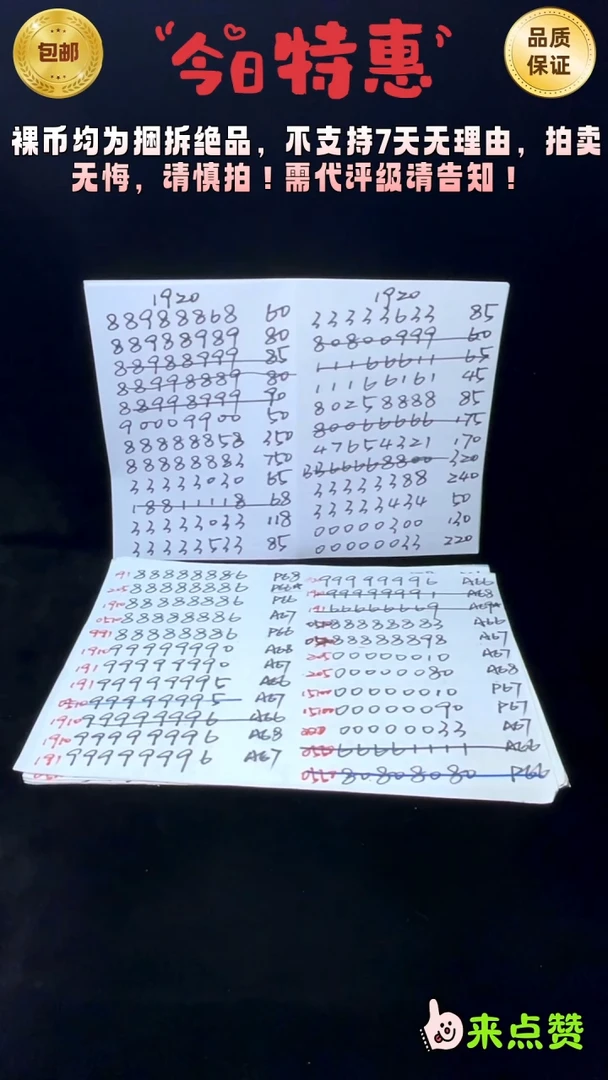 包邮
今日特惠
品质
保证
裸币均为捆拆绝品，不支持7天无理由，拍卖
无悔，请慎拍！需代评级请告知！
1920
88988868 60
88988989 80
88988999 85
88998889 80
88998999 90
90009900 50
88888858 350
88888883 750
33333030 65
18811118 68
33333033 118
33333533 85
1920
33333633 85
80800999 60
11166611 65
11166161 45
80258888 85
80066666 175
47654321 170
320
33333388 240
33333434 50
00000300 130
00000033 220
191 88888886 P68
205 88888886
1910 88888886 P66
0510 88888886 A67
991 88888886 P66
1910 99999990 A68
191 99999990 A67
191 99999995 A66
0510 99999995 A67
1910 99999996 A66
1910 99999996 A68
191 99999996 A67
99999996 A66
99999991 A68
66666669
88888883 A66
88888898 A67
205 00000010 A67
205 00000080 A68
1510 00000010 P67
1510 00000090 P67
00000033 A67
0510 66661111 A66
0510 80808080 P66
来点赞